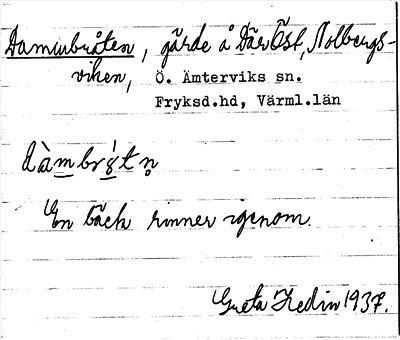 Dammbråten, gärde å Där Öst, Nolbergs-
viken, Ö. Ämterviks sn.
Fryksd.hd, Värml.län
En bäck rinner igenom.
Greta Hedin 1937.